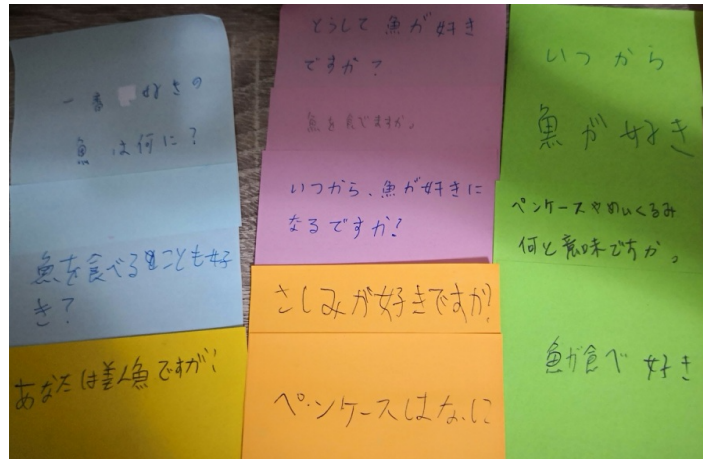 一番 好きの
魚は何に?
魚を食べることも好
き?
あなたは差人魚ですが!
どうして魚が好き
ですか?
魚を食でますか。
いつから、魚が好きに
なるですか?
さしみが好きですか?
ペンケースはなに
いつから
魚が好き
ペンケースやぬいぐるみ
何と意味ですか。
魚が食べ 好き